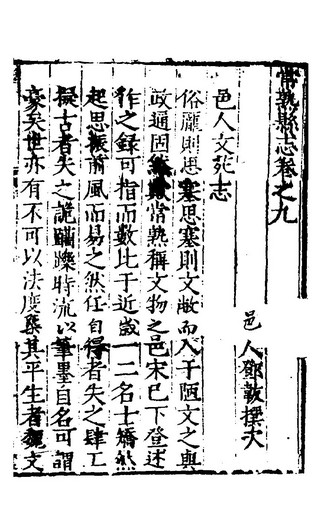 常熟縣志卷之九
邑人鄧韍撰次
邑人文苑志
俗龎則思塞思塞則文敝而入于陋文之與
政通因然常熟稱文物之邑宋已下登述
作之録可指而數比于近歲一二名士矯然
起思振前風而易之然任自得者失之肆工
擬古者失之詭蹦躒時流以筆墨自名可謂
豪矣世亦有不可以法度槩其平生者魏文